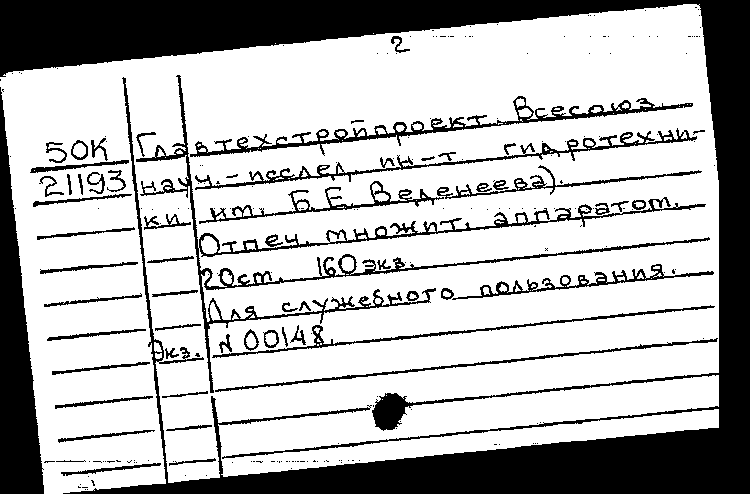 2
50К Главтехстройпроект. Всесоюз.
21193 науч.-исслед. ин-т гидротехни-
ки им. Б.Е. Веденеева).
Отпеч. множит. аппаратом.
20ст. 160экз.
Для служебного пользования.
Экз. N 00148.